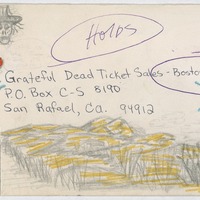 Holds
Grateful Dead Ticket Sales - Bosto
P.O. Box C-S 8190
San Rafael, Ca. 94912